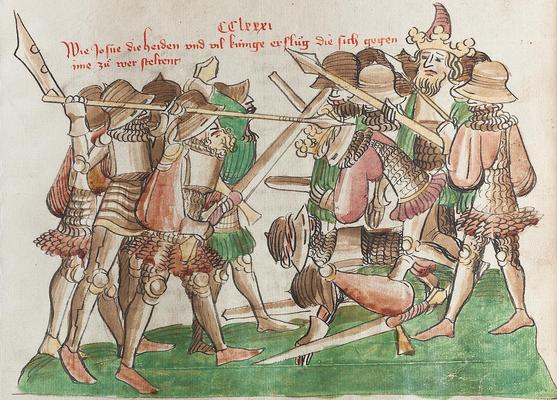 CClxxxi
Wie Josue die heiden vnd vil künige erslüg die sich gegen
ime zü wer steltent